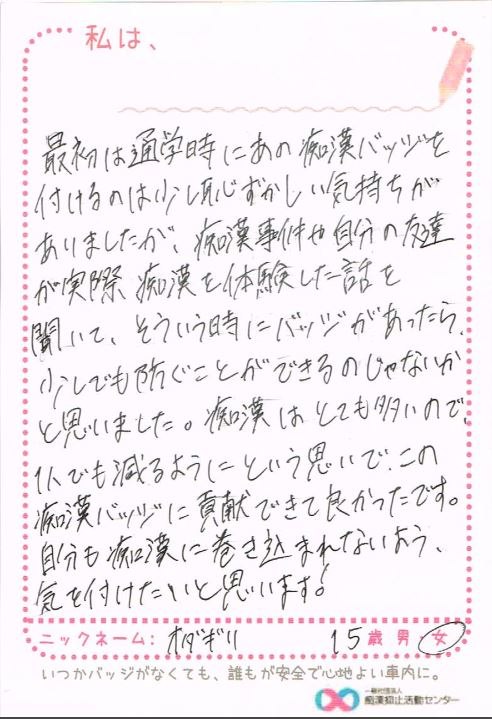 私は、
最初は通学時にあの痴漢バッジを
付けるのは少し恥ずかしい気持ちが
ありましたが、痴漢事件や自分の友達
が実際痴漢を体験した話を
聞いて、そういう時にバッジがあったら、
少しでも防ぐことができるのじゃないか
と思いました。痴漢はとても多いので、
1人でも減るようにという思いで、この
痴漢バッジに貢献できて良かったです。
自分も痴漢に巻き込まれないよう、
気を付けたいと思います!
ニックネーム: オダギリ 15歳 男・女
いつかバッジがなくても、誰もが安全で心地よい車内に。
一般社団法人
痴漢抑止活動センター